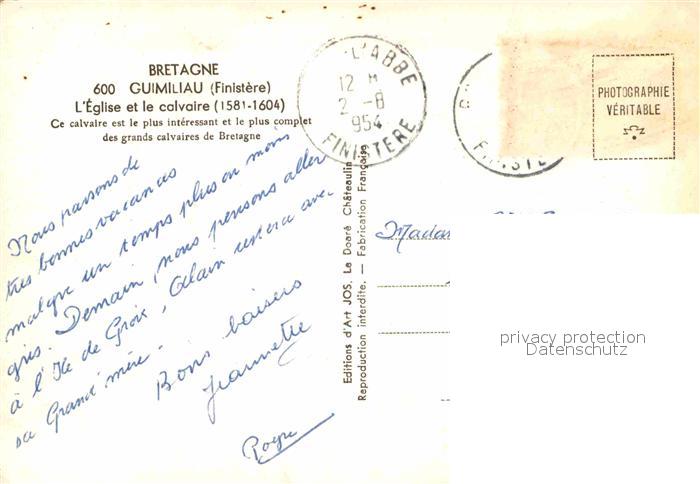 BRETAGNE
600 GUIMILIAU (Finistère)
L'Église et le calvaire (1581-1604)
Ce calvaire est le plus intéressant et le plus complet
des grands calvaires de Bretagne
L'ABBE
12 H
2 -8
954
FINISTERE
FINISTE
PHOTOGRAPHIE
VÉRITABLE
Nous passons de
très bonnes vacances
malgré un temps plus ou moins
gris. Demain, nous pensons aller
à l'Ile de Groix, Alain restera avec
sa Grand'mère.
Bons baisers
Jeannette
Roger
Editions d'Art JOS. Le Doaré Châteaulin
Reproduction interdite. - Fabrication Française
Madam
privacy protection
Datenschutz